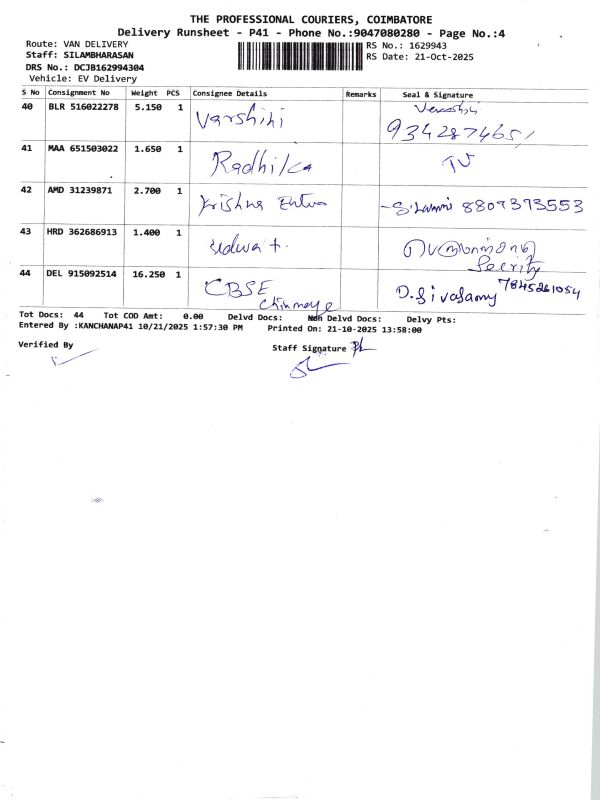 THE PROFESSIONAL COURIERS, COIMBATORE
Delivery Runsheet - P41 - Phone No.:9047080280 - Page No.:4
Route: VAN DELIVERY RS No.: 1629943
Staff: SILAMBHARASAN RS Date: 21-Oct-2025
DRS No.: DCJB162994304
Vehicle: EV Delivery
S No Consignment No Weight PCS Consignee Details Remarks Seal & Signature
40 BLR 516022278 5.150 1 Varshini
934287465
41 MAA 651503022 1.650 1 Radhika
42 AMD 31239871 2.700 1 Krishna 8807373553
43 HRD 362686913 1.400 1
44 DEL 915092514 16.250 1 CBSE D. Sivasamy 7845261054
Chinmaye
Tot Docs: 44 Tot COD Amt: 0.00 Delvd Docs: Non Delvd Docs: Delvy Pts:
Entered By :KANCHANAP41 10/21/2025 1:57:30 PM Printed On: 21-10-2025 13:58:00
Verified By Staff Signature